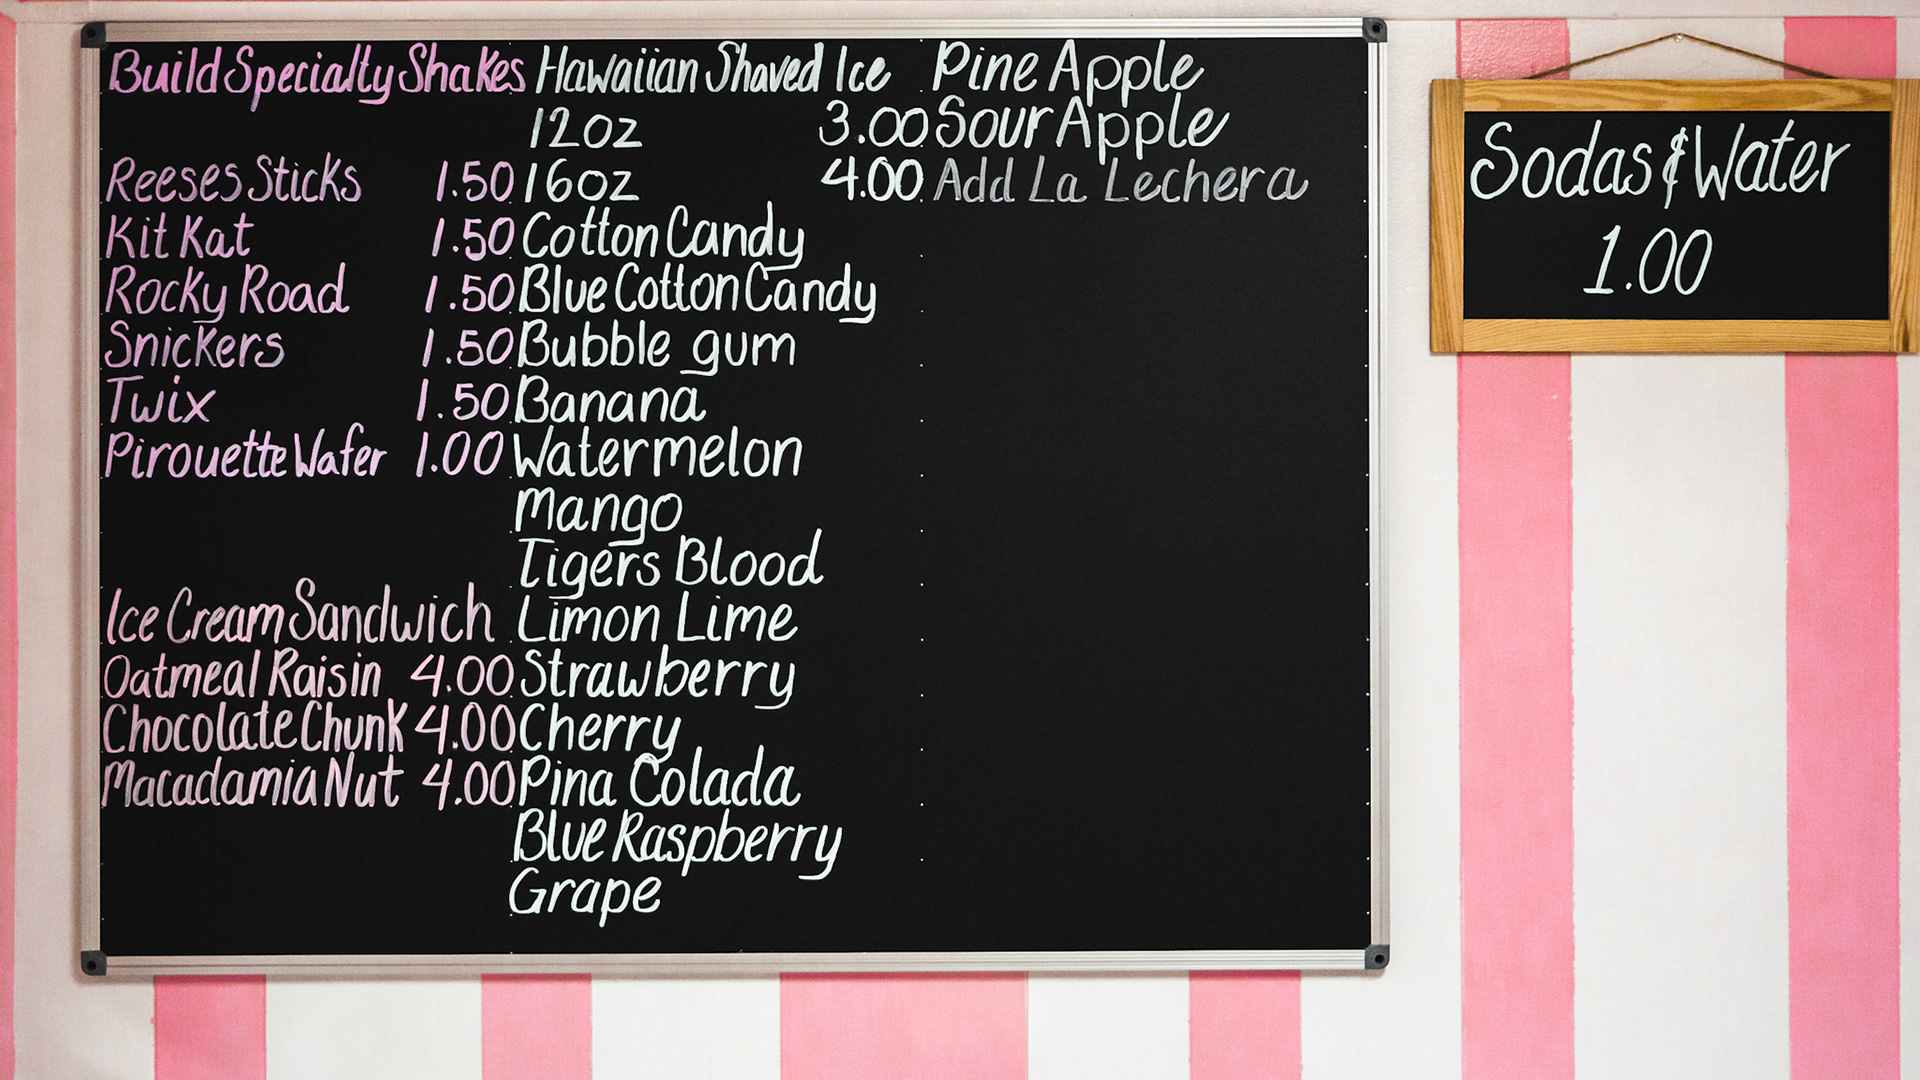 Build Specialty Shakes
Reeses Sticks 1.50
Kit Kat 1.50
Rocky Road 1.50
Snickers 1.50
Twix 1.50
Pirouette Wafer 1.00
Ice Cream Sandwich
Oatmeal Raisin 4.00
Chocolate Chunk 4.00
Macadamia Nut 4.00
Hawaiian Shaved Ice
12oz 3.00
16oz 4.00
Cotton Candy
Blue Cotton Candy
Bubble gum
Banana
Watermelon
Mango
Tigers Blood
Limon Lime
Strawberry
Cherry
Pina Colada
Blue Raspberry
Grape
Pine Apple
Sour Apple
Add La Lechera
Sodas & Water
1.00